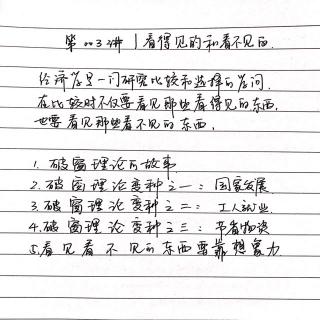 第003讲 | 看得见的和看不见的.
经济学是一门研究比较和选择的学问.
在比较时不仅要看见那些看得见的东西,
也要看见那些看不见的东西.
1. 破窗理论的故事
2. 破窗理论变种之一：国家发展
3. 破窗理论变种之二：工人就业
4. 破窗理论变种之三：节省物资
5. 看见看不见的东西要靠想象力